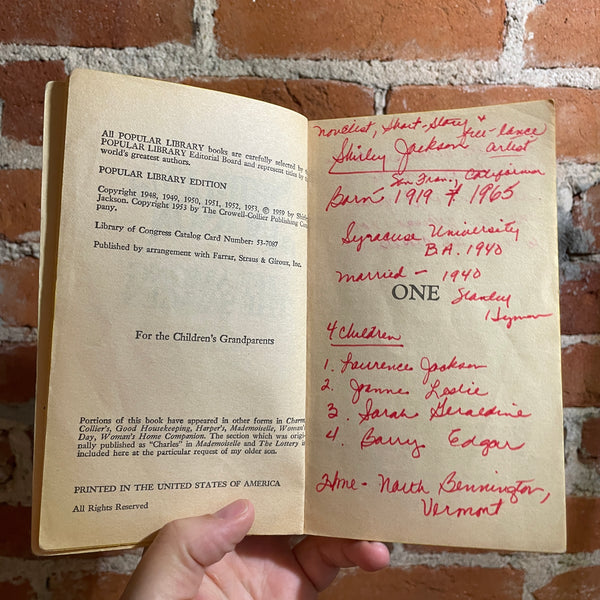 All POPULAR LIBRARY books are carefully selected by the
POPULAR LIBRARY Editorial Board and represent titles by the
world's greatest authors.
POPULAR LIBRARY EDITION
Copyright 1948, 1949, 1950, 1951, 1952, 1953, © 1959 by
Jackson. Copyright 1953 by The Crowell-Collier Publishing Com-
pany.
Library of Congress Catalog Card Number: 53-7087
Published by arrangement with Farrar, Straus & Giroux, Inc.
For the Children's Grandparents
Portions of this book have appeared in other forms in Charm,
Collier's, Good Housekeeping, Harper's, Mademoiselle, Woman's
Day, Woman's Home Companion. The section which was origi-
nally published as "Charles" in Mademoiselle and The Lottery is
included here at the particular request of my older son.
PRINTED IN THE UNITED STATES OF AMERICA
All Rights Reserved
novelist, Short-Story & free-lance
Shirley Jackson artist
San Fran, California
Born 1919 † 1965
Syracuse University
B.A. 1940
married - 1940
ONE Stanley
Hyman
4 Children
1. Laurence Jackson
2. Joanne Leslie
3. Sarah Geraldine
4. Barry Edgar
Home - North Bennington,
Vermont